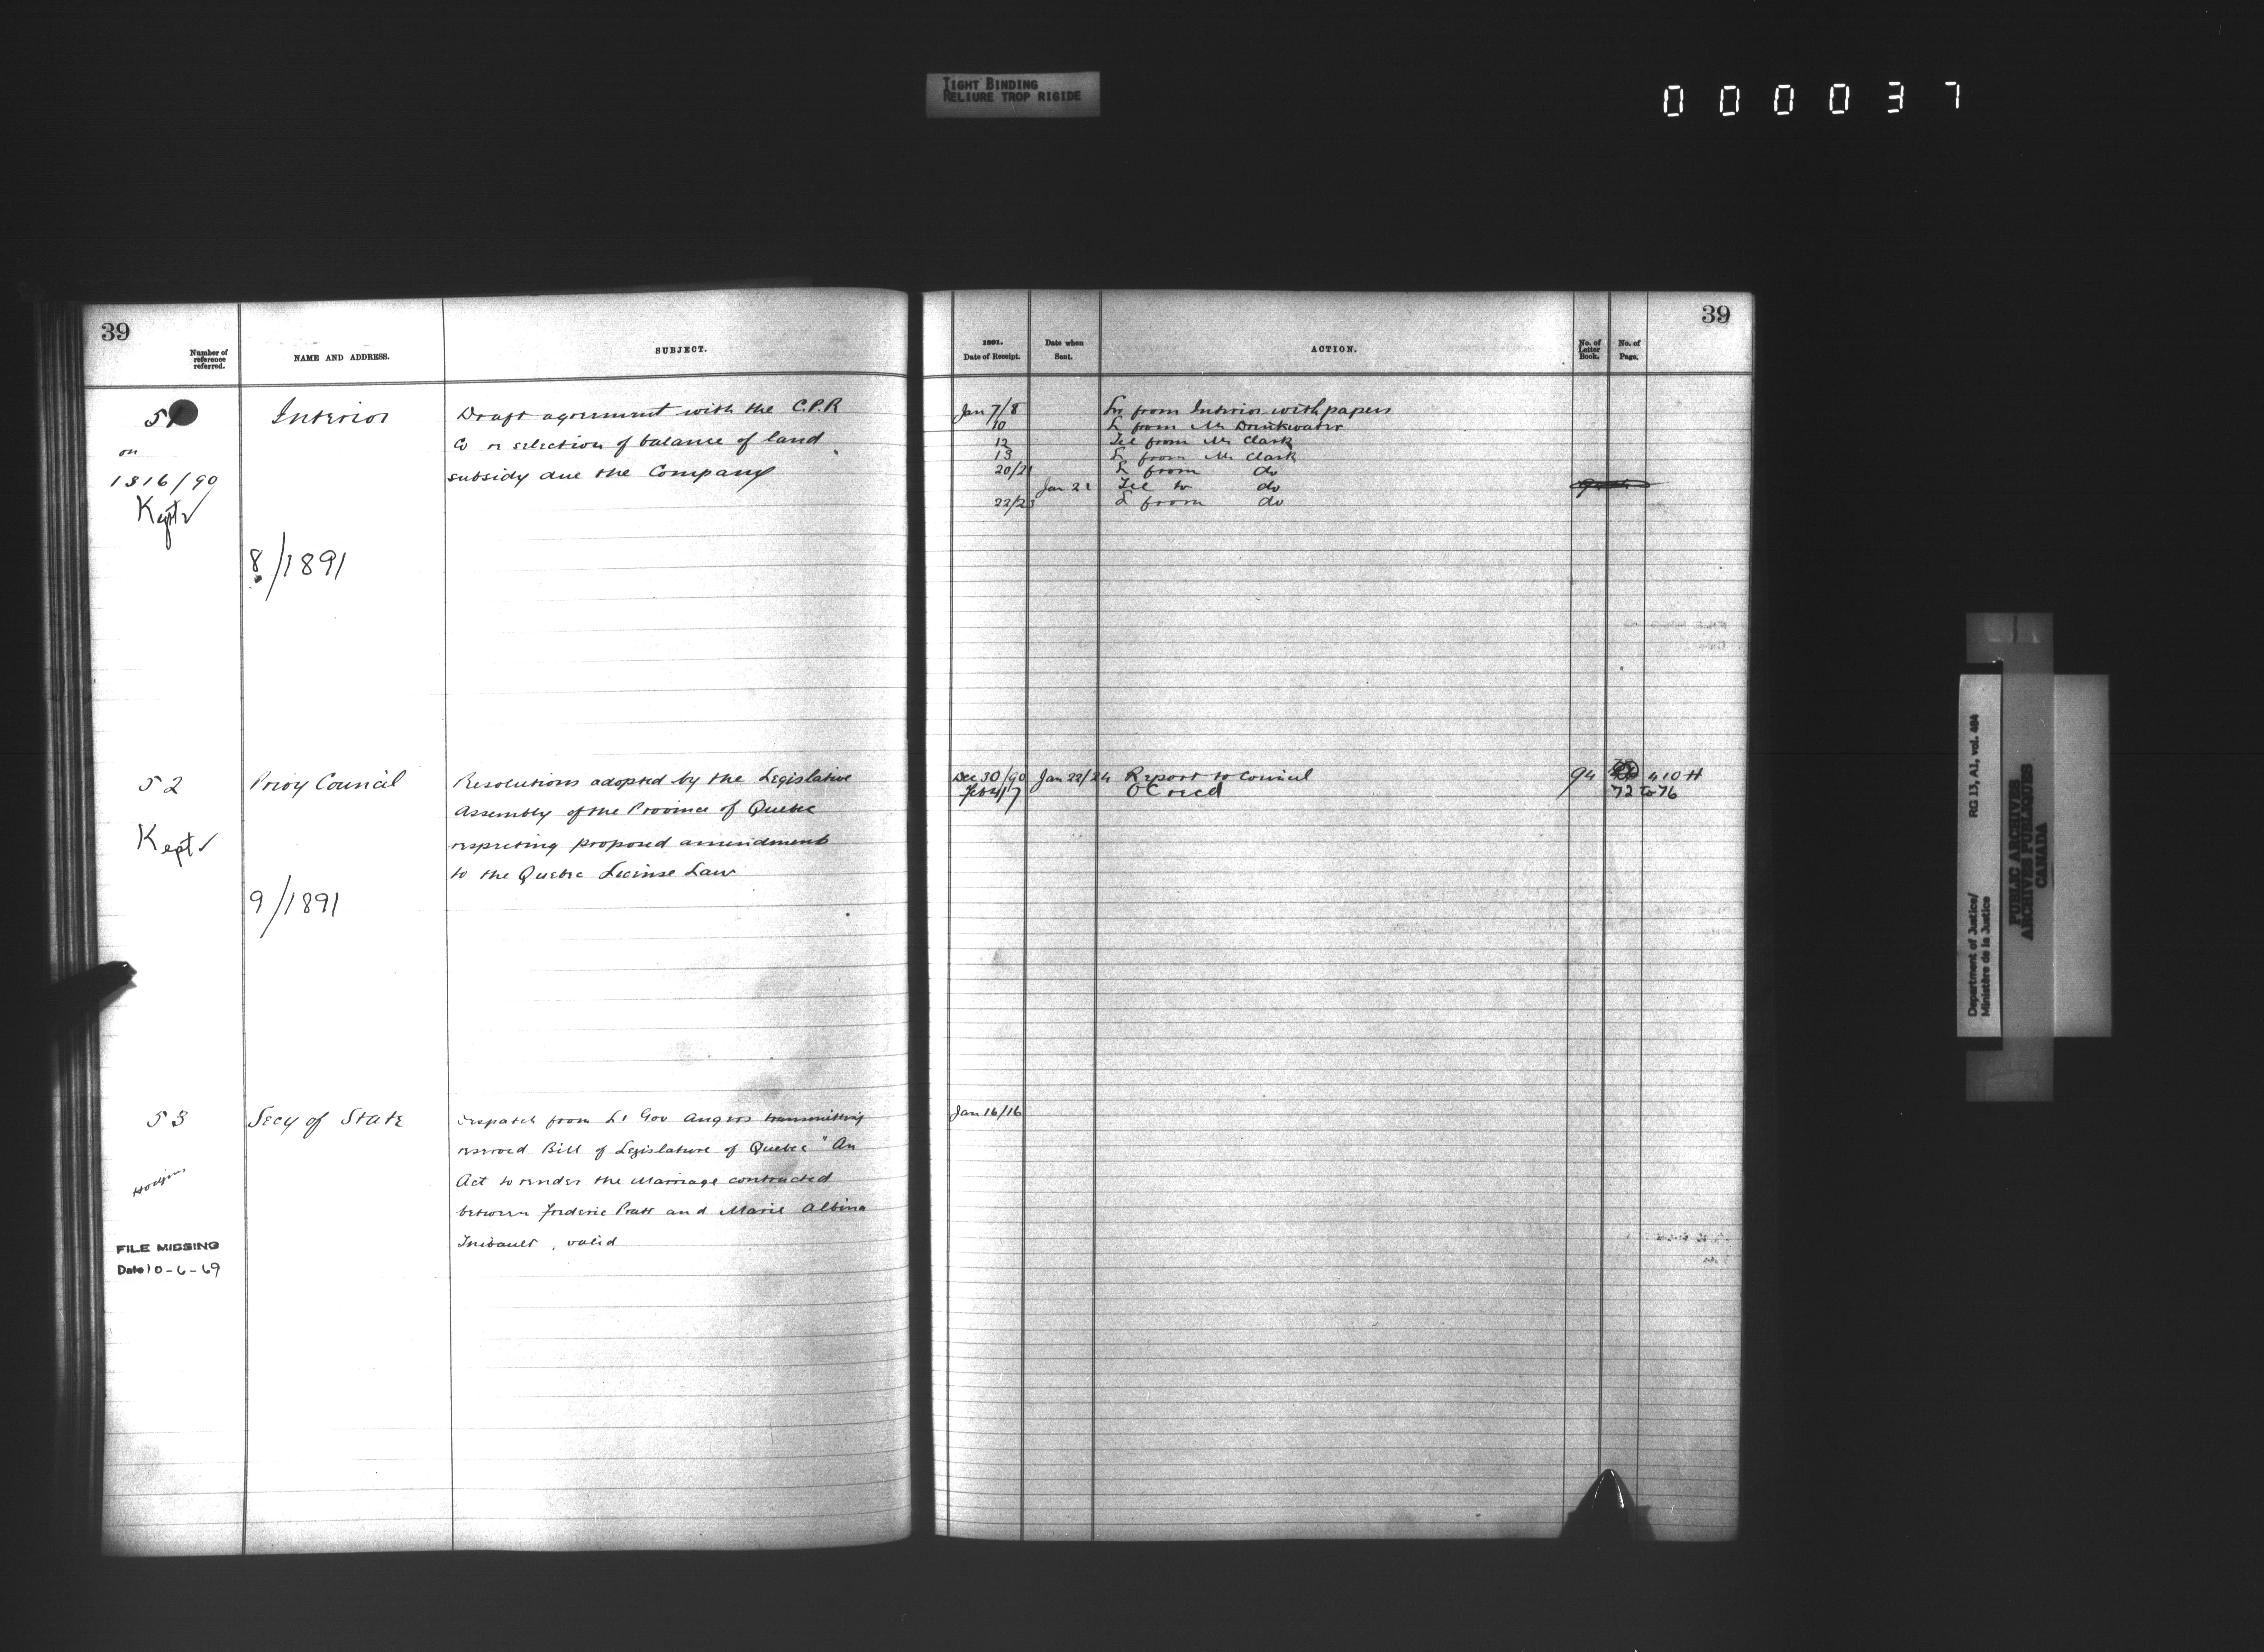 TIGHT BINDING
RELIURE TROP RIGIDE
000037
39
Number of
reference
referred.
NAME AND ADDRESS.
SUBJECT.
51
on
1316/90
Kept
Interior
8/1891
Draft agreement with the C.P.R
Co re selection of balance of land
subsidy due the Company
52
Kept
Privy Council
9/1891
Resolutions adopted by the Legislative
Assembly of the Province of Quebec
respecting proposed amendments
to the Quebec License Law
53
Hodgins
FILE MISSING
Date 10-6-69
Secy of State
Despatch from Lt Gov Angers transmitting
reserved Bill of Legislature of Quebec "An
Act to render the Marriage contracted
between Frederic Pratt and Marie Albina
Thibault, valid
39
1891.
Date of Receipt.
Date when
Sent.
ACTION.
No. of
Letter
Book.
No. of
Page.
Jan 7/8 Lr from Interior with papers
10 L from Mr Drinkwater
12 Tel from Mr Clark
13 L from Mr Clark
20/21 L from do
Jan 21 Tel to do
22/23 L from do
Dec 30/90 Jan 22/24 Report to Council 94 410 H
Feb 4/7 OC recd 72 to 76
Jan 16/16
Department of Justice/
Ministère de la Justice
RG 13, A1, vol. 484
PUBLIC ARCHIVES
ARCHIVES PUBLIQUES
CANADA